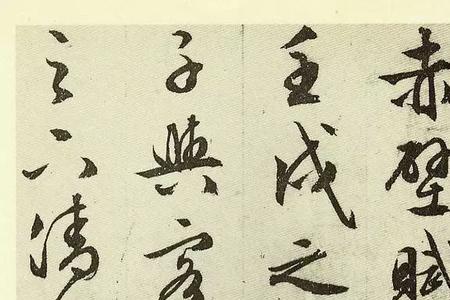 赤壁賦
壬戌之
子與客
之下清